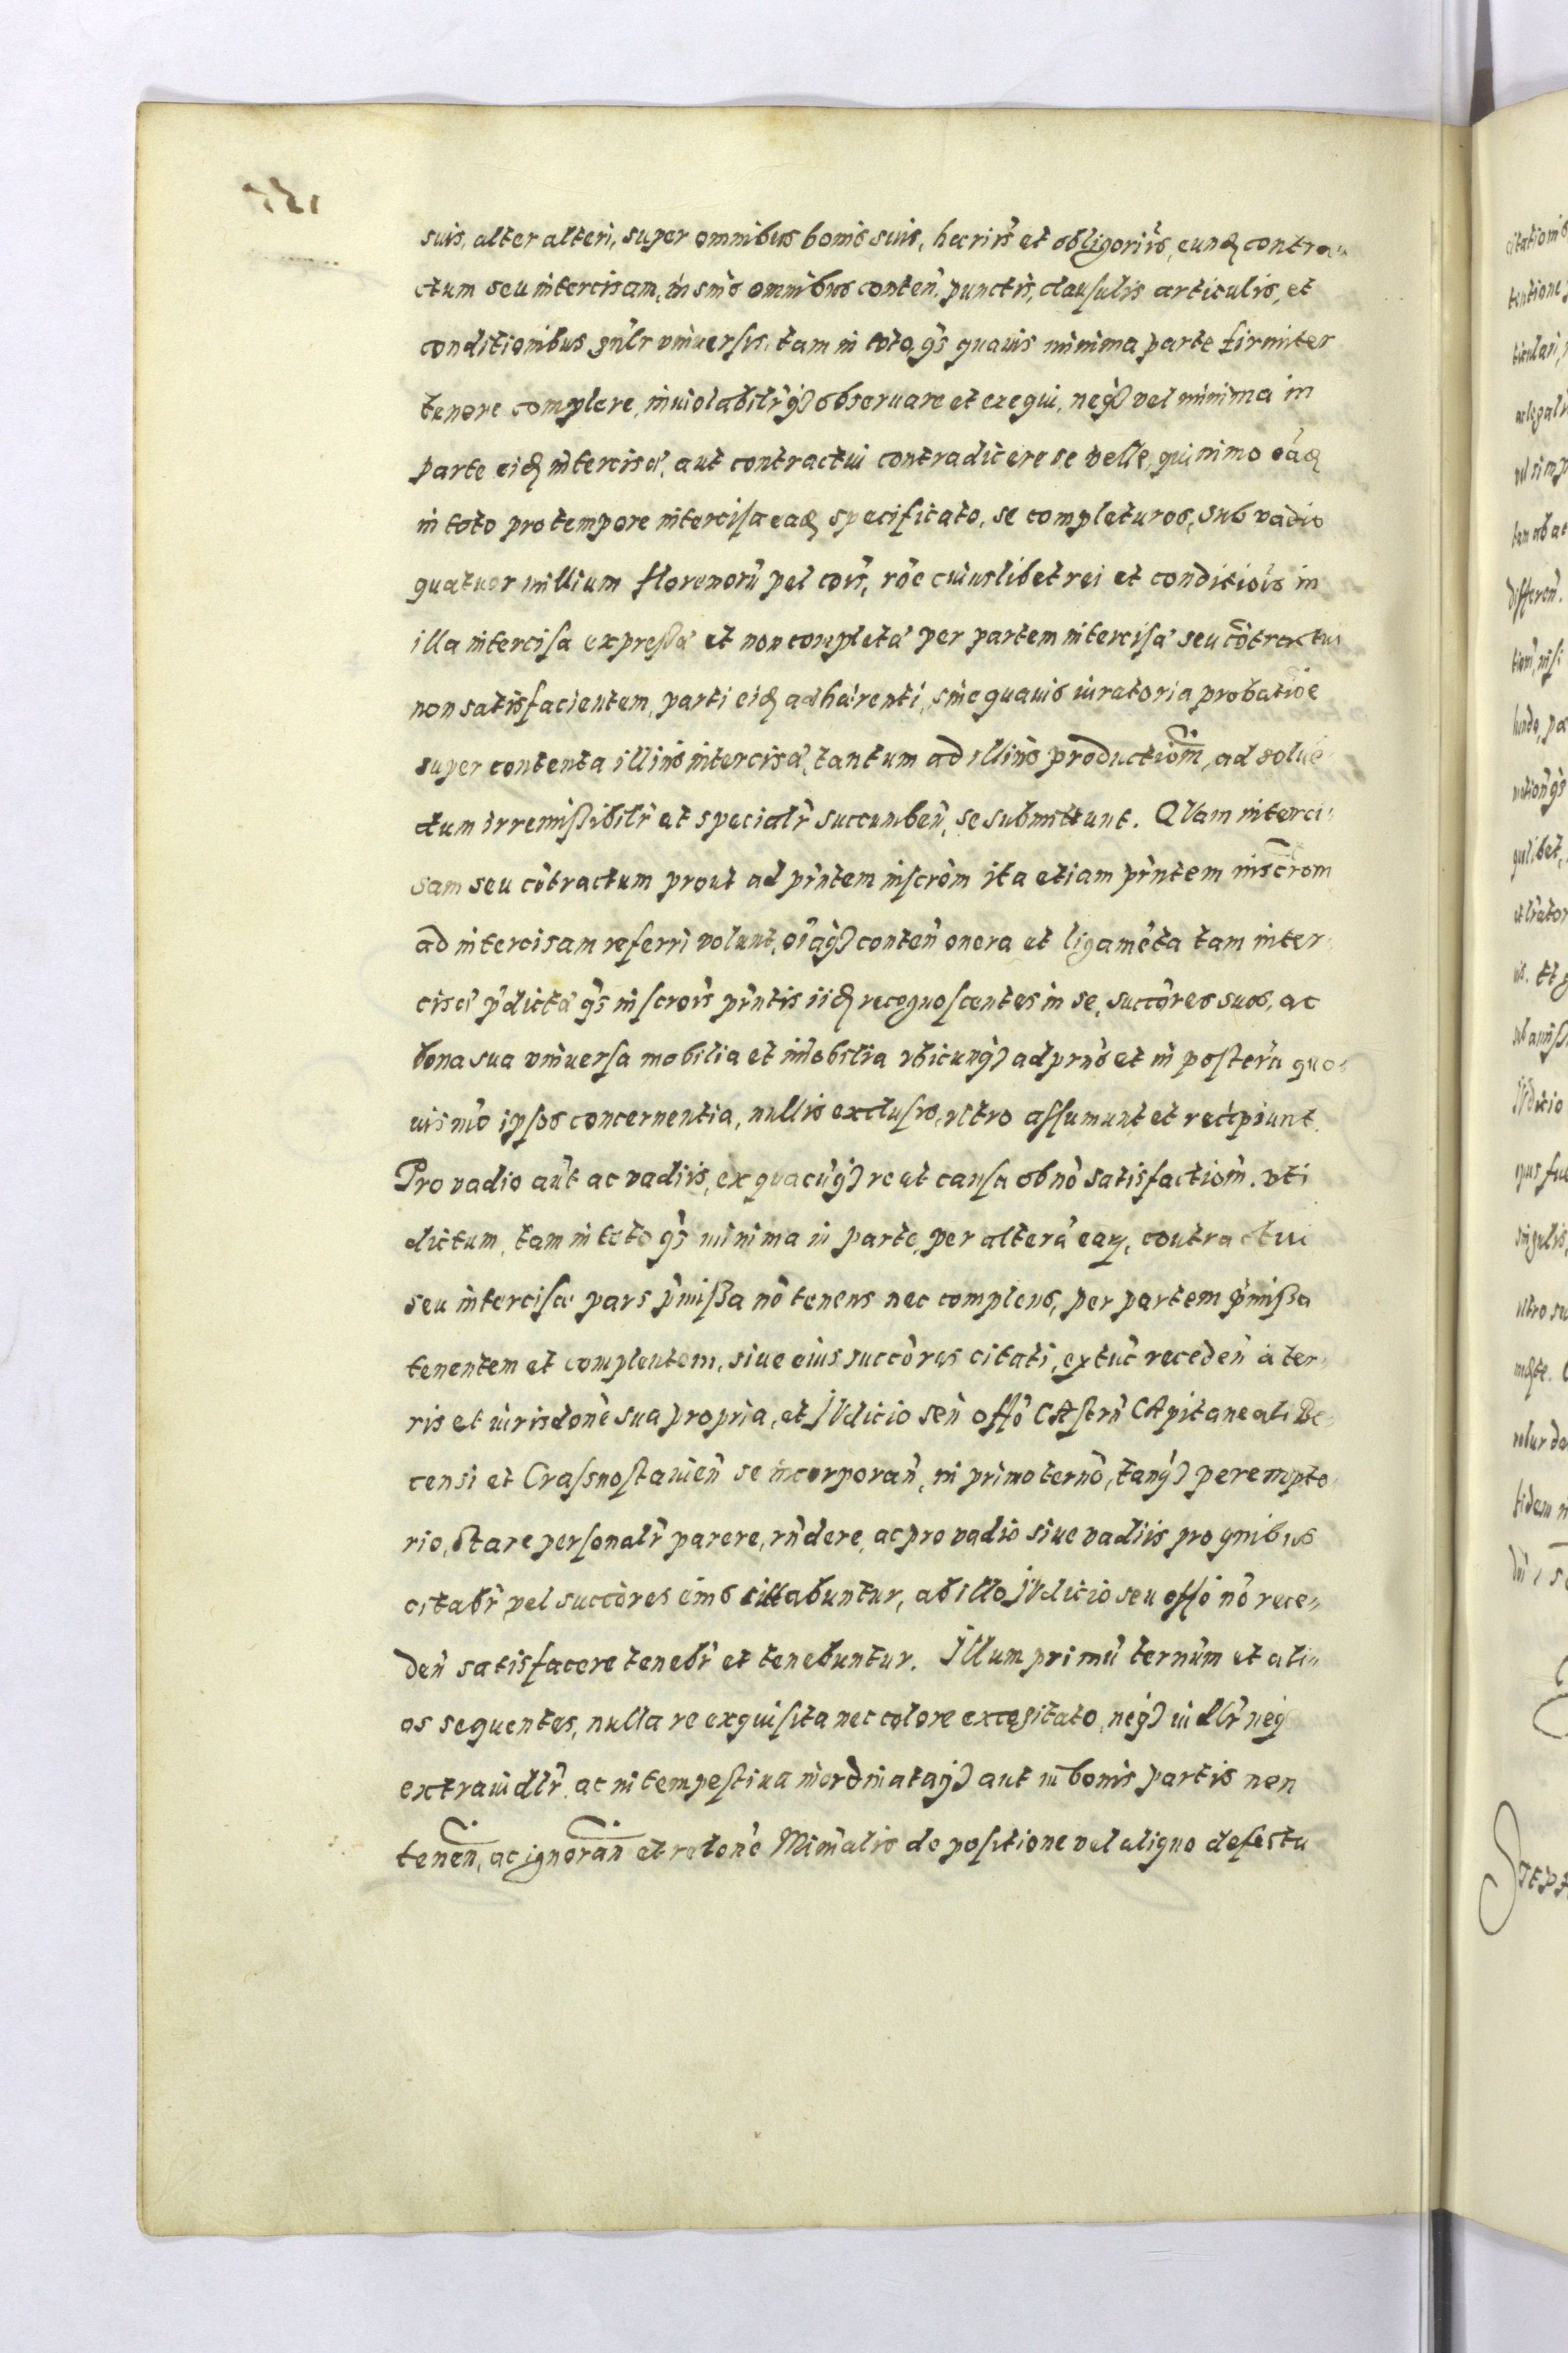 suis, alter alteri, super omnibus bonis suis, hæriis et obligoriis, eundē contra„
ctum seu intercisam, in suis omnibus conten̄. punctis, clausulis articulis, et
conditionibus gn̄lr vniuersis, tam in toto, q̄s quauis minima parte firmiter
tenere complere, inuiolabilr̄q3 obseruare et exequi, neq3 vel minima in
parte eidē intercisæ, aut contractui contradicere se velle, quinimo eādē
in toto pro tempore intercisa eadē specificato, se completuros, sub vadio
quatuor millium florenorū pol con̄, rōe cuiuslibet rei et conditiōis in
illa intercisa expreßæ et non completæ per partem intercisæ seu cōtractui
non satisfacientem, parti eidē adhærenti, sine quauis iuratoria probatiōe
super contenta illius intercisæ, tantum ad illius productiōm, ad soluē
dum irremißibilr̄ et specialr̄ succumben̄, se submittunt. QVam interci„
sam seu cōtractum prout ad pr̄ntem inscrōm ita etiam pr̄ntem inscrōm
ad intercisam referri volunt, oīaq3 conten̄ onera et ligamēta tam inter„
cisæ p̄dictæ q̄s inscrōis pr̄ntis iidē recognoscentes in se, succōres suos, ac
bona sua vniuersa mobilia et im̄obilia vbicunq3 ad prn̄s et in posterū quo„
uismō ipsos concernentia, nullis exclusis, vltro assumunt et recipiunt.
Pro vadio aūt ac vadiis, ex quacūq3 re et causa ob nō satisfactiōm. vti
dictum, tam in toto q̄s minima in parte, per alterā eaꝝ, contractui
seu intercisæ pars p̄mißa nō tenens nec complens, per partem p̄mißa
tenentem et complentem, siue eius succōres citati, ex tūc receden̄ a ter„
ris et iurisdonē sua propria, et JVdicio seū offō CAstrn̄ CApitaneali Be„
censi et Crasnostauien̄ se incorporan̄, in primo ternō, tanq3 perempto„
rio, stare personalr̄ parere, rn̄dere, ac pro vadio siue vadiis pro quibus
citabr̄ vel succōres eius citabuntur, ab illo JVdicio seu offō nō rece„
den̄ satisfacere tenebr̄ et tenebuntur. Jllum primū ternūm et ali„
os sequentes, nulla re exquisita nec colore excogitato, neq3 iudlr̄ neq
extraiudlr̄. ac intempestiua inordinataq3 aut in bonis partis non
tenen̄, ac ignoran̄ et relōne Min̄alis de positione vel aliquo defectu